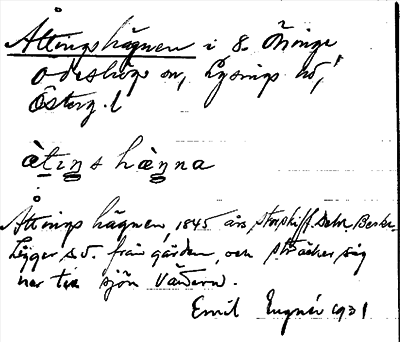 Åttingshägnen i S. Öninge
Ödeshögs sn, Lysings hd,
Österg. l
àtiŋs hæŋna
Åttings hägnen, 1845 års storskift. Beskr.
Ligger s.v. från gården, och sträcker sig
ner till sjön Vättern.
Emil Engnér 1931